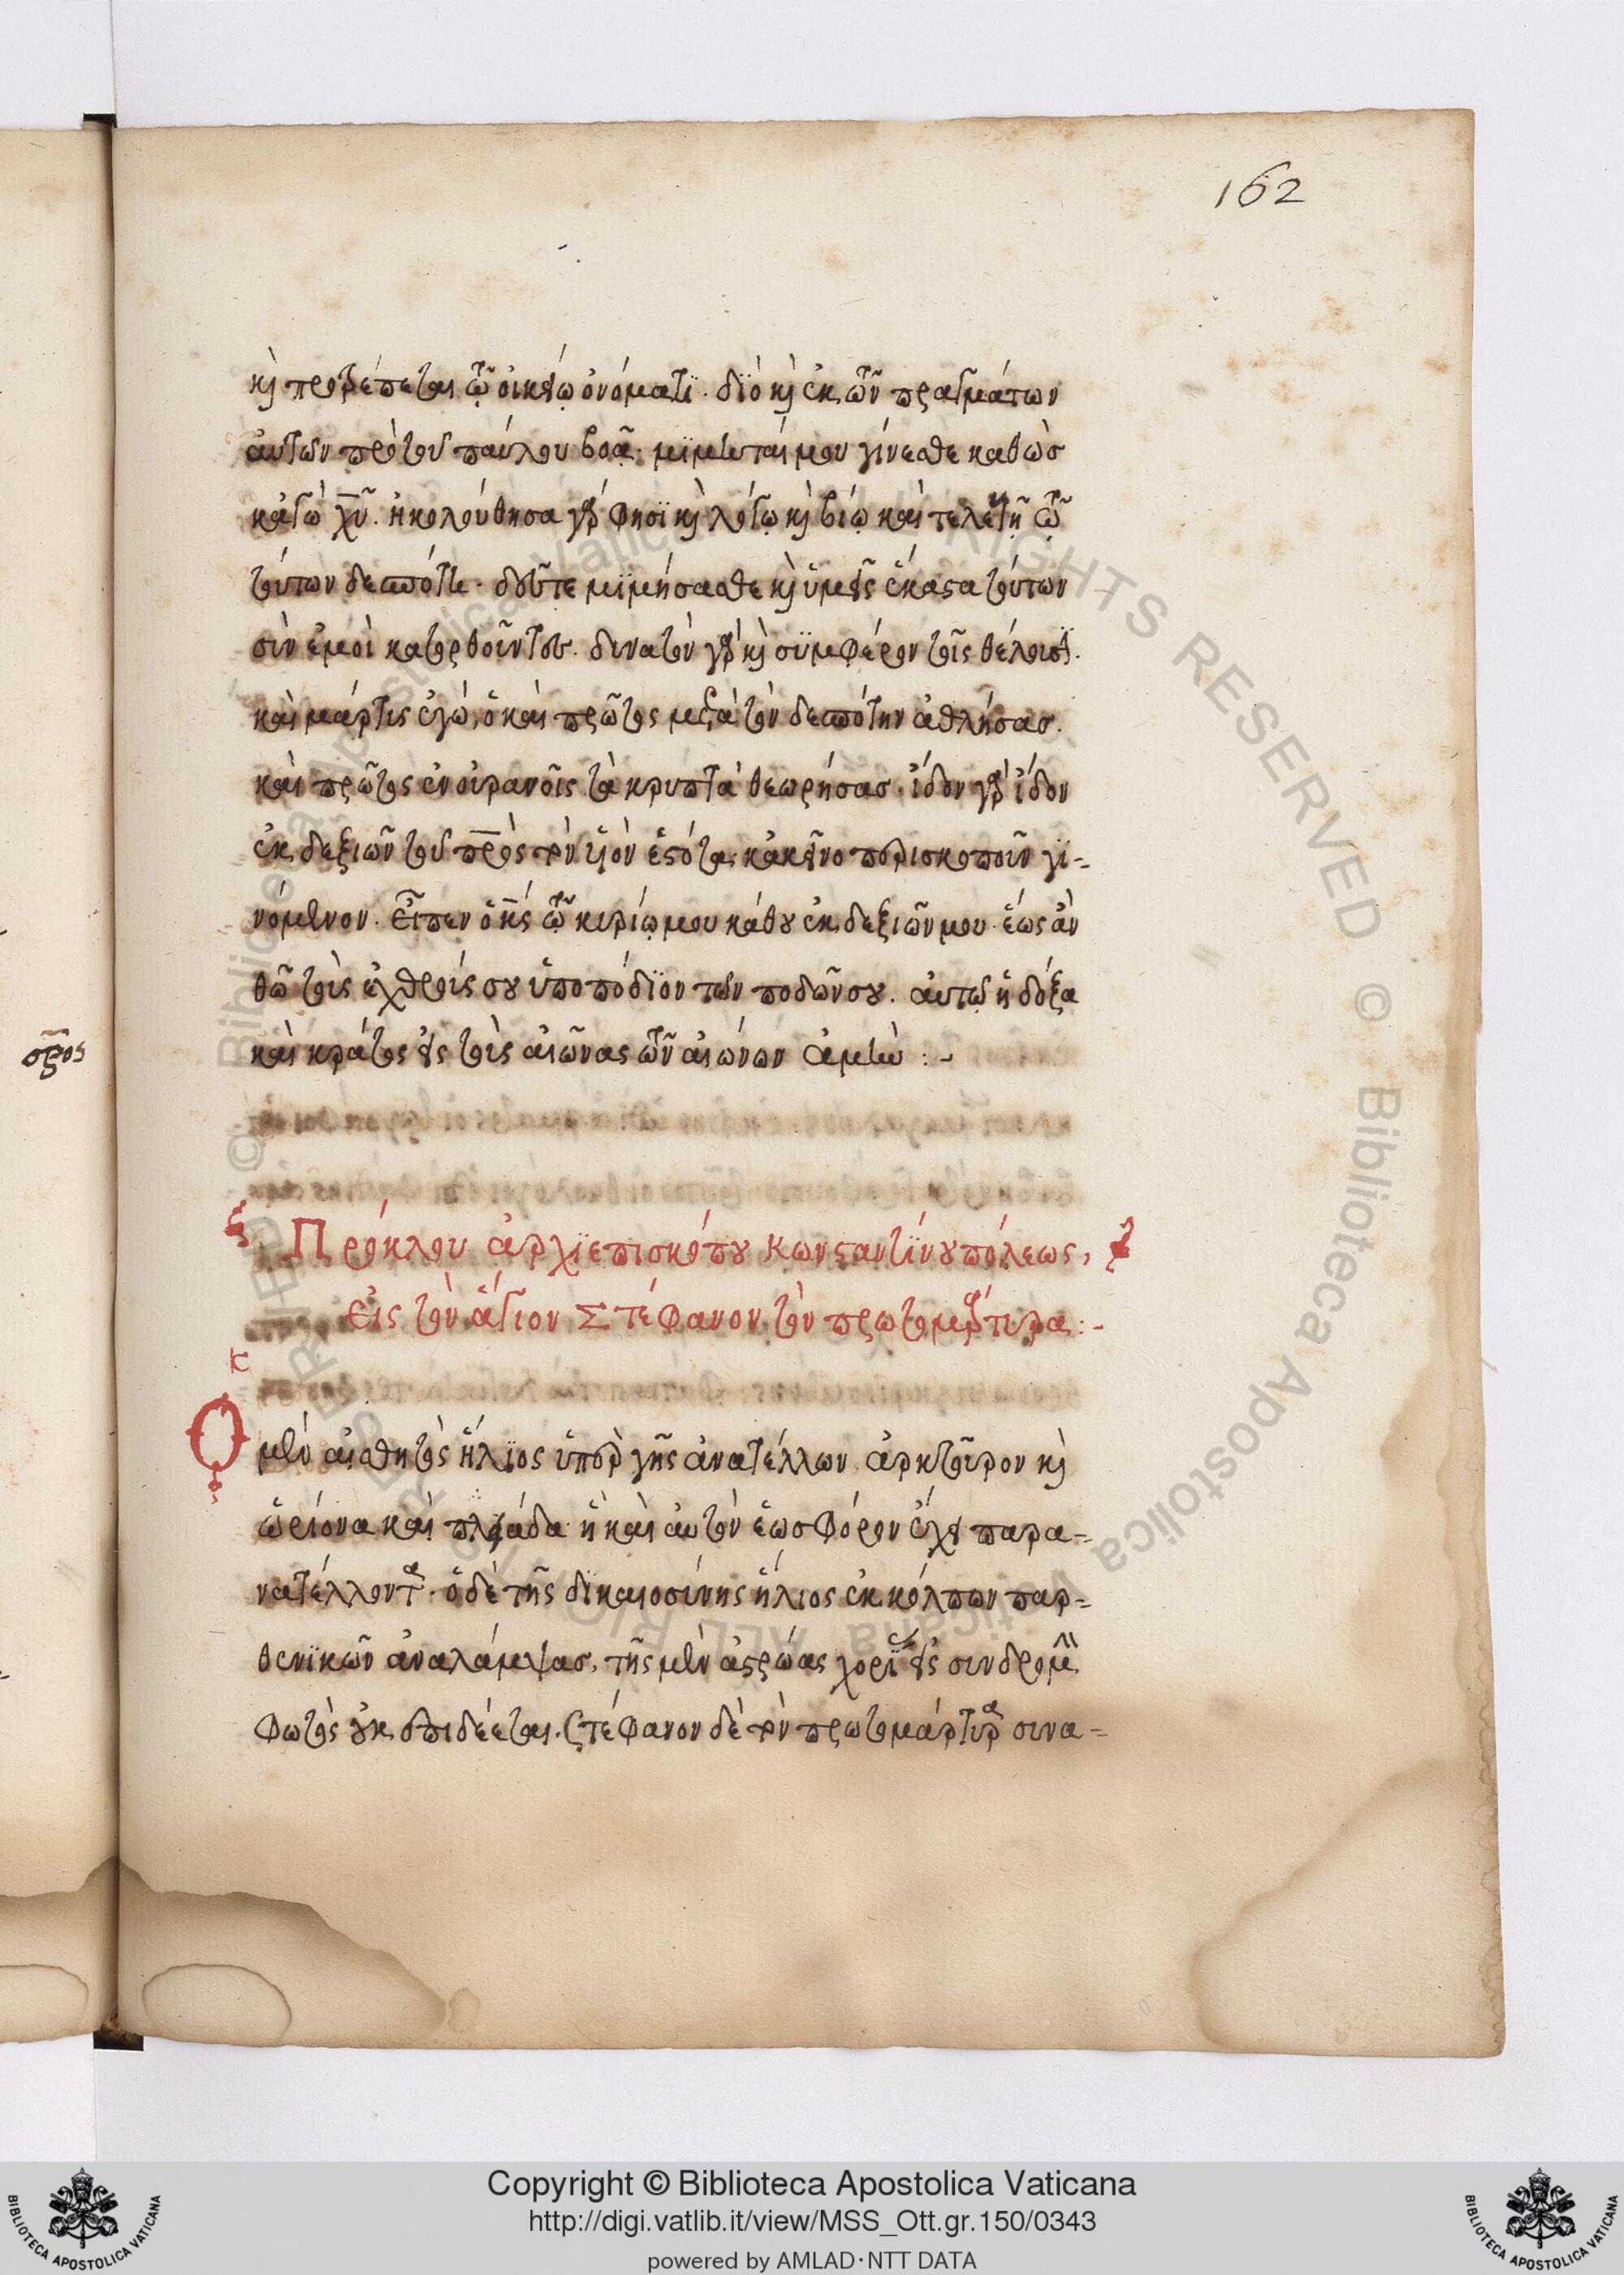 162
κỳ προτρέπεται τῷ οἰκείῳ ὀνόματϊ. δϊὸ κỳ ἐκ τῶν πραγμάτων
αὐτῶν πρὸ τοῦ παύλου βοᾷ. μϊμηταί μου γίνεσθε καθὼσ
κἀγὼ χῦ. ἠκολούθησα γάρ φησϊ κỳ λόγῳ κỳ βίῳ καὶ τελετῇ τῷ
τούτων δεσπότῃ. δεῦτε μϊμήσασθε κỳ ὑμεῖς ἕκαστα τούτων
σὺν ἐμοὶ κατορθοῦντες. δυνατὸν γάρ κỳ σϋμφέρον τοῖς θέλουσϊ.
καὶ μάρτις ἐγὼ, ὁ καὶ πρῶτος μετὰ τὸν δεσπότην ἀθλήσασ.
καὶ πρῶτος ἐν οὐρανοῖς τὰ κρυπτὰ θεωρήσασ. ἴδον γάρ ἴδον
ἐκ δεξιῶν τοῦ πρς τὸν ὑιὸν ἑστότα, κἀκεῖνο
νόμενον. εἶπεν ὁ κς τῷ κυρίῳ μου κάθου ἐκ δεξιῶν μου. ἕως ἂν
θῶ τοὺς ἐχθρούς σου ὑποπόδϊον τῶν ποδῶν σου. αὐτῷ ἡ δόξα
καὶ κράτος εἰς τοὺς αἰῶνας τῶν αἰώνων ἀμήν :-
σρος
Πρόκλου ἀρχϊεπισκόπου Κωνσταντϊνουπόλεως,
εἰς τὸν ἅγιον Στέφανον τὸν πρωτομάρτυρα :-
Ὁ μὲν αἰσθητὸς ἥλϊος ὑπὲρ γῆς ἀνατέλλων, ἀρκτοῦρον κỳ
ὠρίονα καὶ πλειάδα ἢ καὶ αὐτὸν ἑωσφόρον ἔχει παρα=
νατέλλοντα. ὁ δὲ τῆς δϊκαιοσύνης ἥλιος ἐκ κόλπων παρ=
θενϊκῶν ἀναλάμψασ, τῆς μὲν ἀστρῴας συνδρομῆς
φωτὸς οὐκ ἐπιδέεται. Στέφανον δὲ τὸν πρωτομάρτυρα συνα=
Copyright © Biblioteca Apostolica Vaticana
http://digi.vatlib.it/view/MSS_Ott.gr.150/0343
powered by AMLAD·NTT DATA